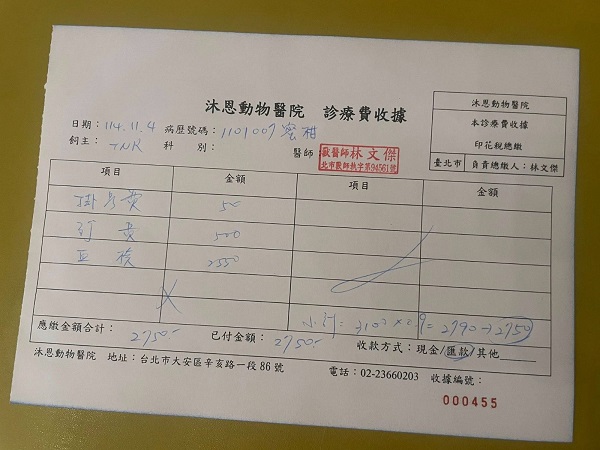 沐恩動物醫院 診療費收據
沐恩動物醫院
本診療費收據
印花稅總繳
臺北市 負責總繳人:林文傑
日期: 114.11.4 病歷號碼: 1101007 蜜柑
飼主: TNR 科 別: 醫師: 獸醫師 林文傑
北市獸師執字第94561號
項目 金額 項目 金額
掛號費 50
診費 500
2550
小計= 3100×0.9=2790→2750
應繳金額合計: 2750.- 已付金額: 2750.- 收款方式:現金/匯款/其他
沐恩動物醫院 地址:台北市大安區辛亥路一段86號 電話:02-23660203 收據編號:
000455